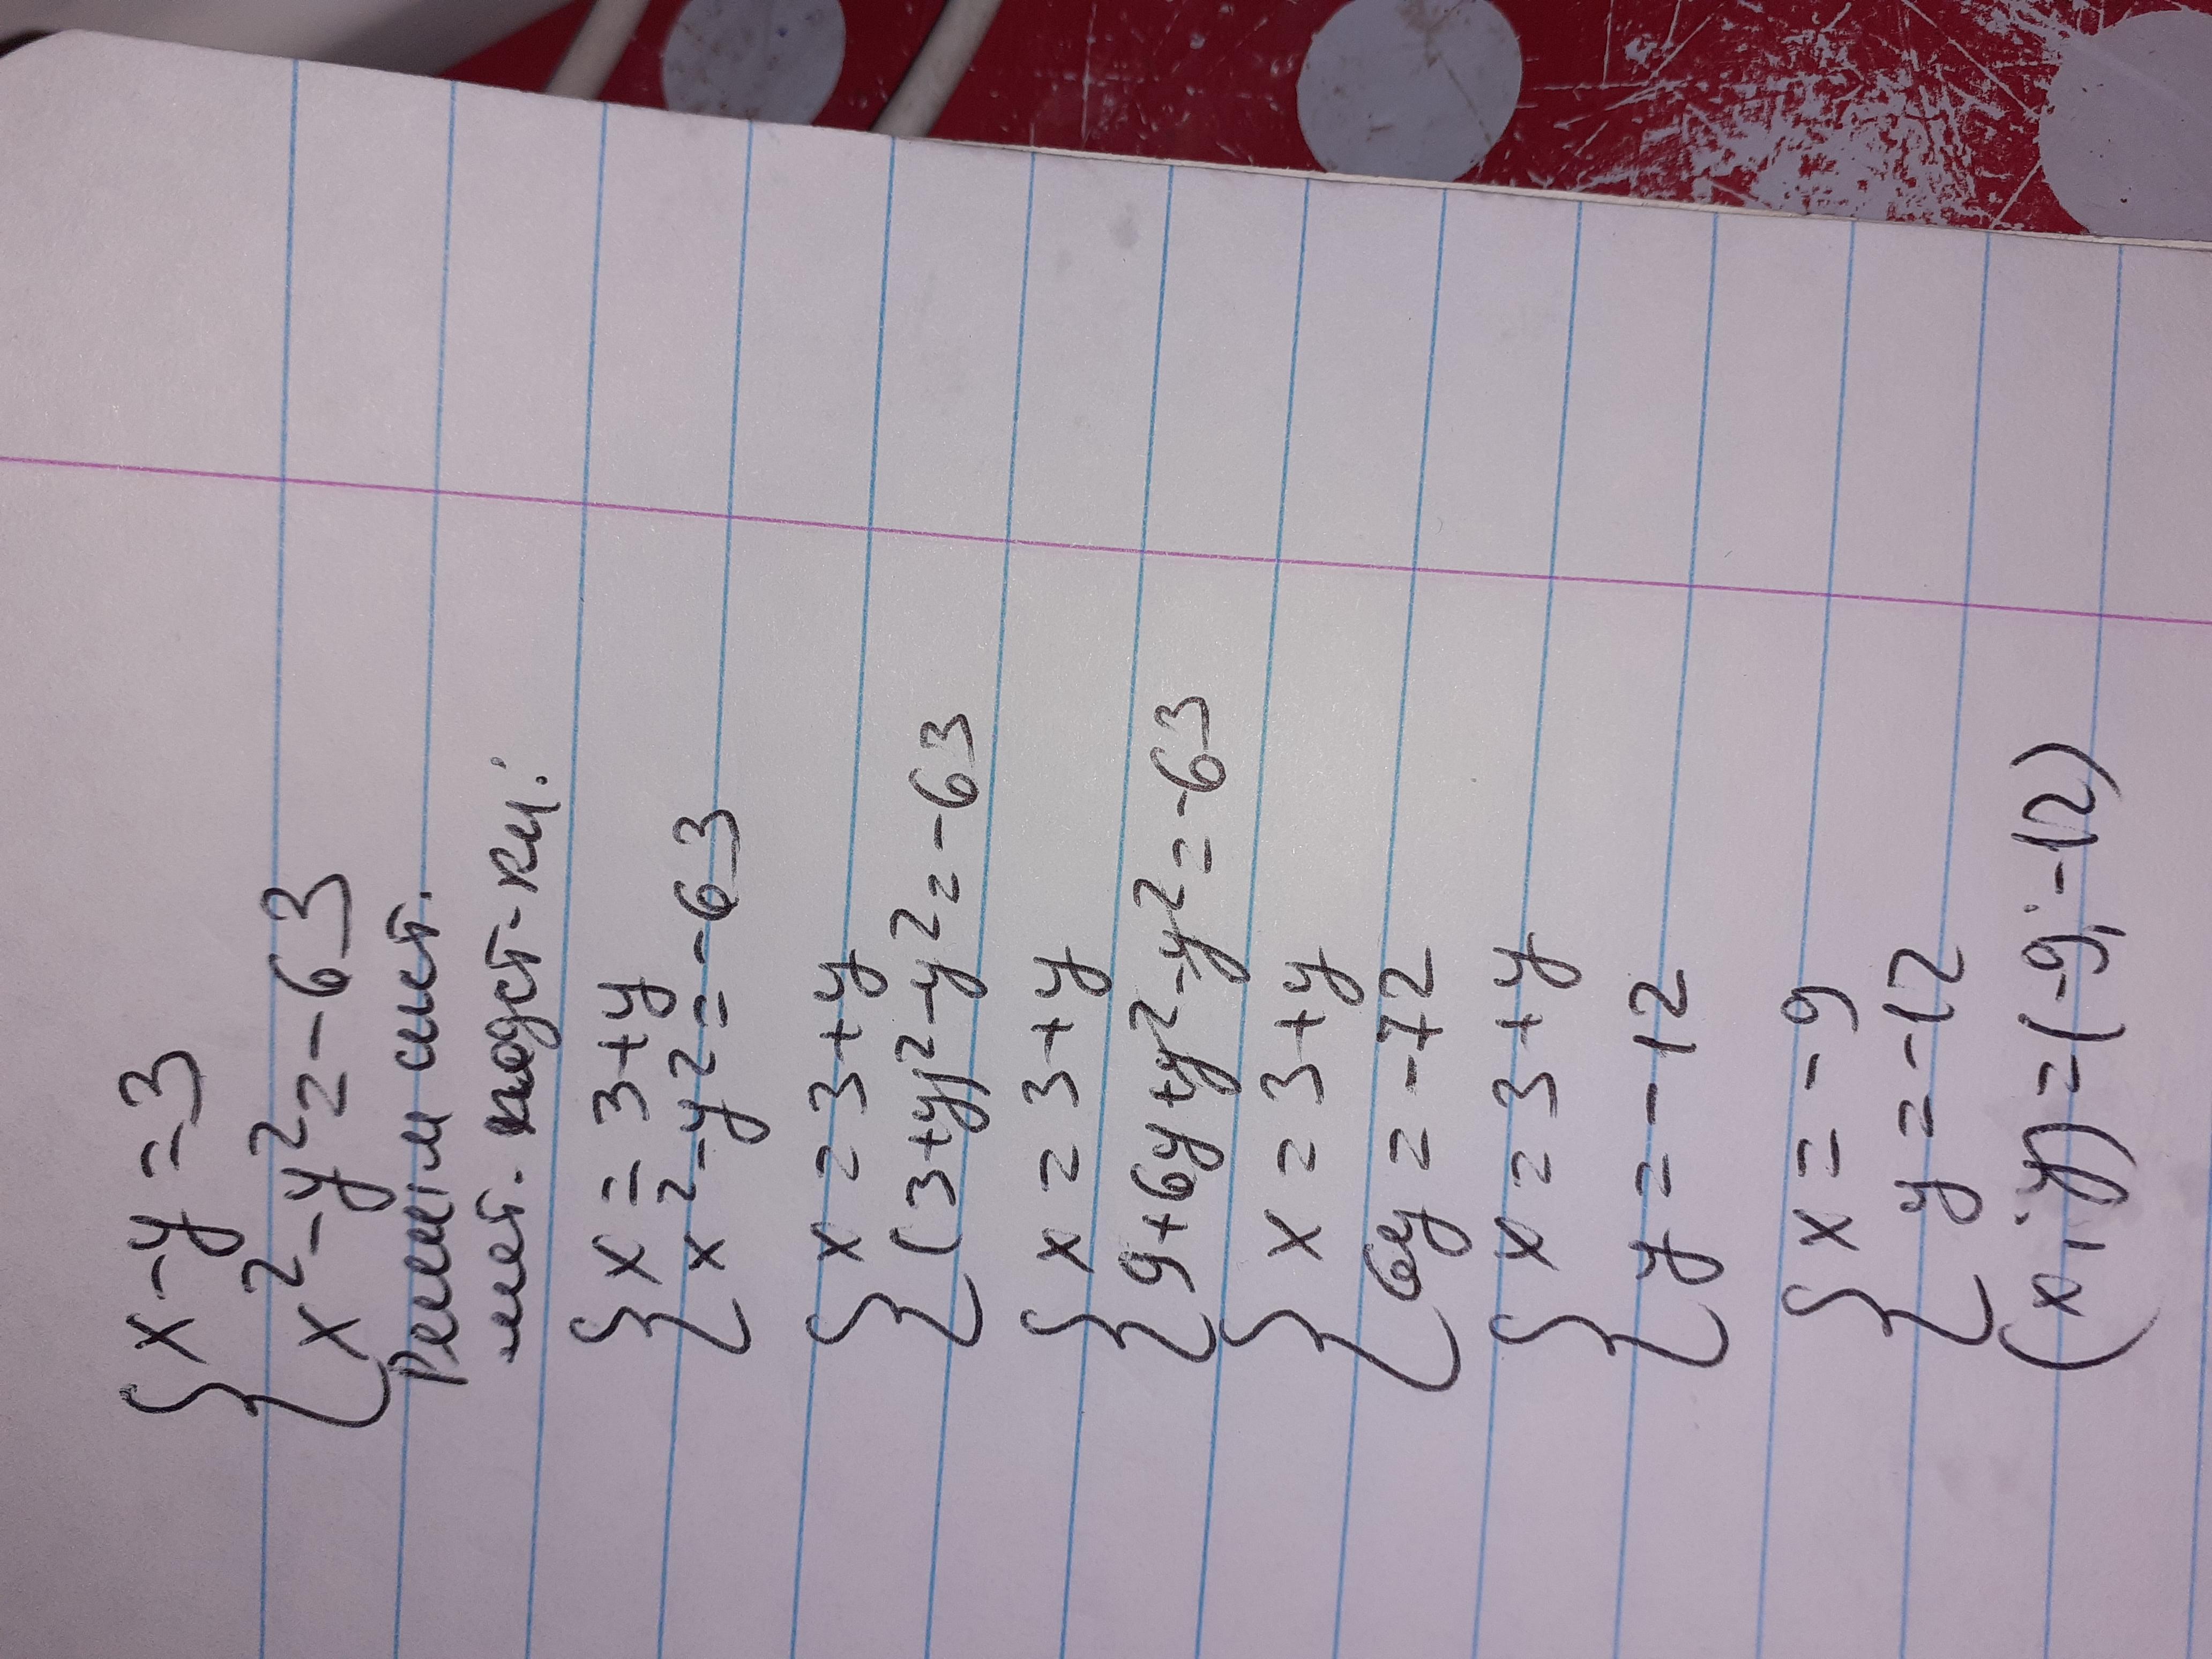 { x-y=3
x²-y²=-63
Решим сист.
мет. подст-ки:
{ x=3+y
x²-y²=-63
{ x=3+y
(3+y)²-y²=-63
{ x=3+y
9+6y+y²-y²=-63
{ x=3+y
6y=-72
{ x=3+y
y=-12
{ x=-9
y=-12
(x;y)=(-9;-12)